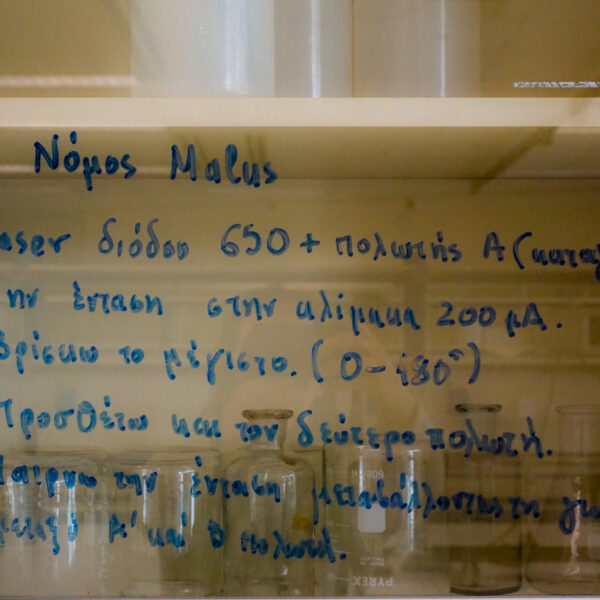 Νόμος Malus
aser διόδου 650 + πολωτής Α (κατα
ην ένταση στην κλίμακα 200 μΑ.
βρίσκω το μέγιστο. (0 - 180°)
Προσθέτω και τον δεύτερο πολωτή.
Παίρνω την ένταση μεταβάλλοντας τη γω
μεταξύ Α' και Β πολωτή.
PYREX